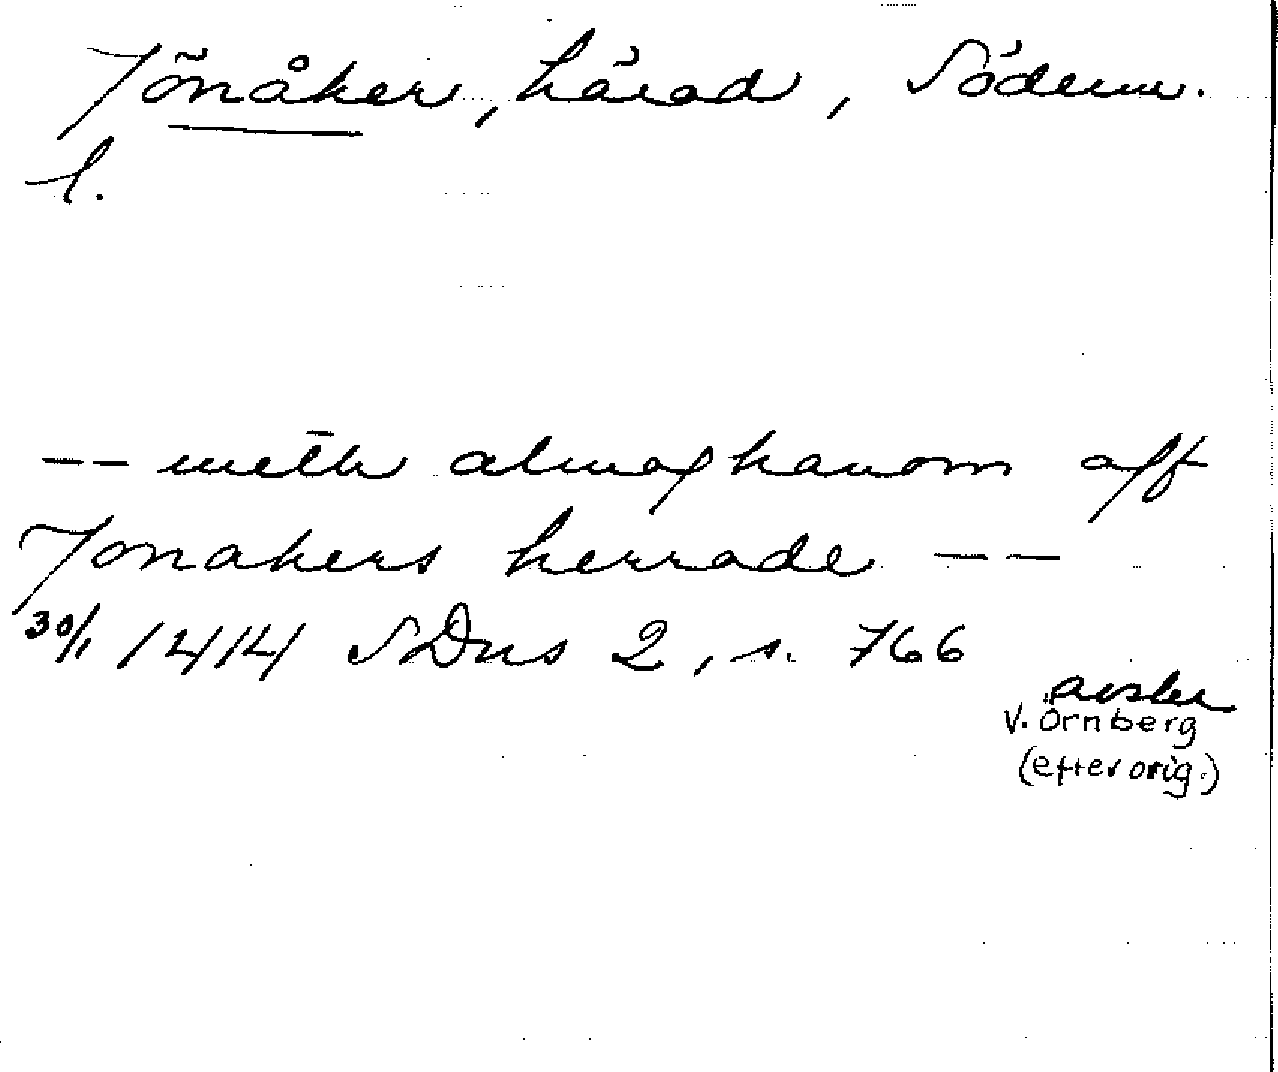 Jönåker, härad, Söderm.
l.
-- meth almoghanom aff
Jonakers herrade --
30/1 1414 SDns 2, s. 766
avskr
v. Örnberg
(efter orig.)